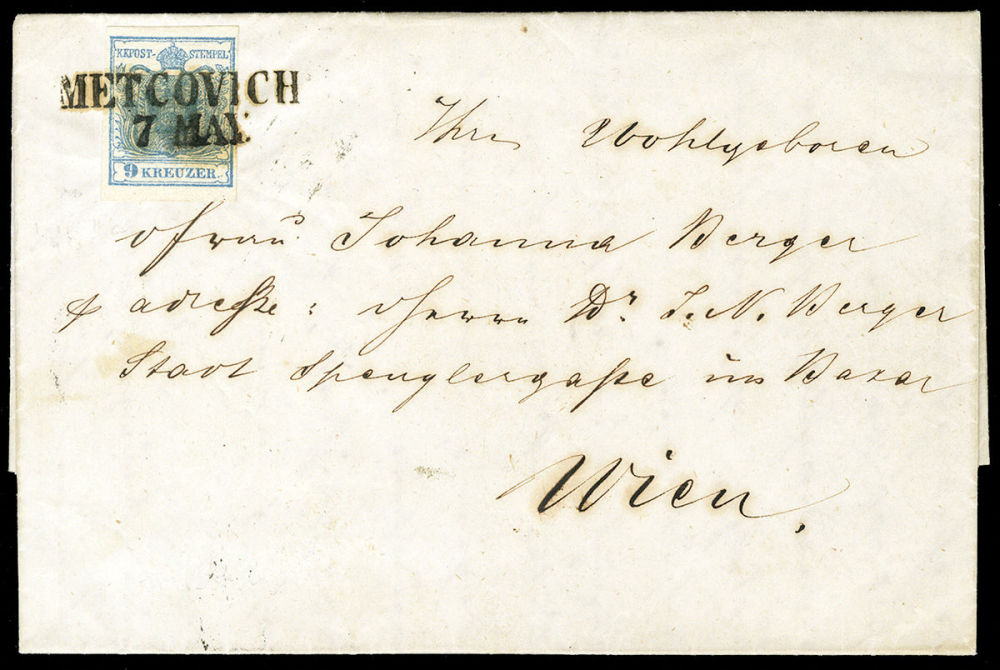 KKPOST-STEMPEL
METCOVICH
7 MAY.
9 KREUZER.
Ihre Wohlgeboren
Frau Johanna Berger
adreße : Herrn Dr. J. N. Berger
Stadt Spenglergaße im Bazar
Wien,